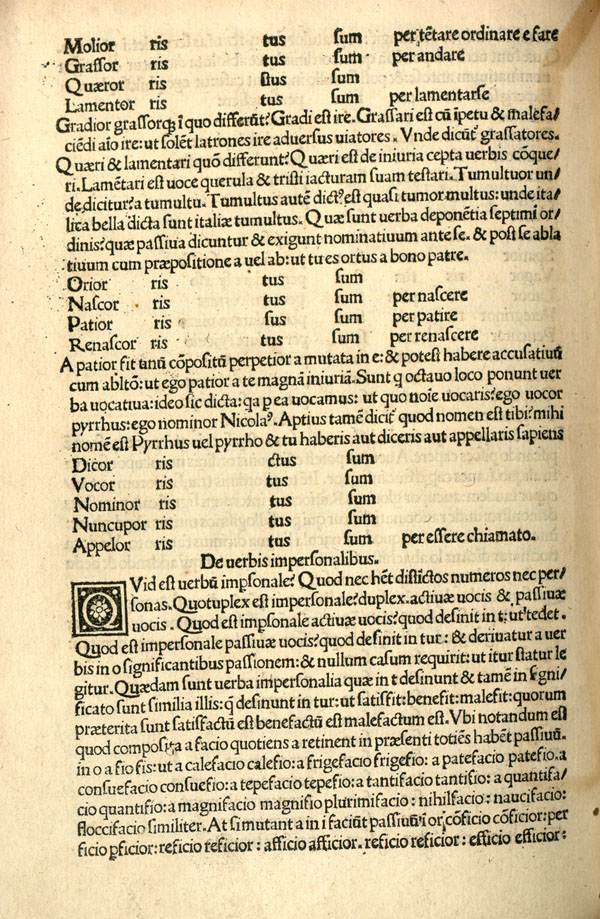 Molior ris tus sum per tẽtare ordinare e fare
Grassor ris tus sum per andare
Quæror ris stus sum
Lamentor ris tus sum per lamentarse
Gradior grassorq; ĩ quo differũt? Gradi est ire. Grassari est cũ ĩpetu & malefa/
ciẽdi aĩo ire: ut solẽt latrones ire aduersus uiatores. Vnde dicũt grassatores.
Quæri & lamentari quõ differunt? Quæri est de iniuria cepta uerbis cõque/
ri. Lamẽtari est uoce querula & tristi iacturam suam testari. Tumultuor un/
de dicitur? a tumultu. Tumultus autẽ dictꝰ est quasi tumor multus: unde ita/
lica bella dicta sunt italiæ tumultus. Quæ sunt uerba deponẽtia septimi or/
dinis? quæ passiua dicuntur & exigunt nominatiuum ante se. & post se abla
tiuum cum præpositione a uel ab: ut tu es ortus a bono patre.
Orior ris tus sum
Nascor ris tus sum per nascere
Patior ris sus sum per patire
Renascor ris tus sum per renascere
A patior fit unũ cõpositũ perpetior a mutata in e: & potest habere accusatiuũ
cum abltõ: ut ego patior a te magnã iniuriã. Sunt q octauo loco ponunt uer
ba uocatiua: ideo sic dicta: qa p ea uocamus: ut quo noie uocaris? ego uocor
pyrrhus: ego nominor Nicolaꝰ. Aptius tamẽ dicit̃ quod nomen est tibi? mihi
nomẽ est Pyrrhus uel pyrrho & tu haberis aut diceris aut appellaris sapiens
Dicor ris ctus sum
Vocor ris tus sum
Nominor ris tus sum
Nuncupor ris tus sum
Appelor ris tus sum per essere chiamato.
De uerbis impersonalibus.
QVid est uerbũ impsonale? Quod nec hẽt distĩctos numeros nec per/
sonas. Quotuplex est impersonale? duplex. actiuæ uocis & passiuæ
uocis. Quod est impsonale actiuæ uocis? quod definit in t: ut tedet.
Quod est impersonale passiuæ uocis? quod definit in tur: & deriuatur a uer
bis in o significantibus passionem: & nullum casum requirit: ut itur statur le
gitur. Quædam sunt uerba impersonalia quæ in t desinunt & tamẽ in signi/
ficato sunt similia illis: q̃ desinunt in tur: ut satisfit: benefit: malefit: quorum
præterita sunt satisfactũ est benefactũ est malefactum est. Vbi notandum est
quod composita a facio quotiens a retinent in præsenti totiẽs habẽt passiuũ
in o a fio fis: ut a calefacio calefio: a frigefacio frigefio: a patefacio patefio. a
consuefacio consuefio: a tepefacio tepefio: a tantifacio tantifio: a quantifa/
cio quantifio: a magnifacio magnifio plurimifacio: nihilfacio: naucifacio:
floccifacio similiter. At si mutant a in i faciũt passiuũ ĩ or, cõficio cõficior: per
ficio pficior: reficio reficior: afficio afficior. reficio reficior: efficio efficior: